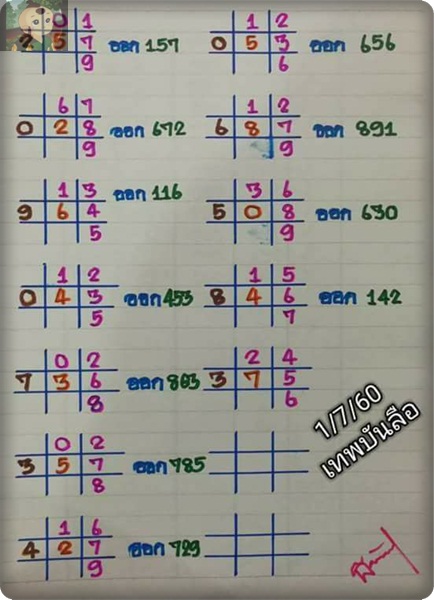 0 1
2 5 7 ออก 157
9
1 2
0 5 3 ออก 656
6
6 7
0 2 8 ออก 672
9
1 2
6 8 7 ออก 891
9
1 3 ออก 116
9 6 4
5
3 6
5 0 8 ออก 630
9
1 2
0 4 3 ออก 453
5
1 5
8 4 6 ออก 142
7
0 2
7 3 6 ออก 803
8
2 4
3 7 5
6
0 2
3 5 7 ออก 785
8
1 6
4 2 7 ออก 729
9
1/7/60
เทพบันลือ